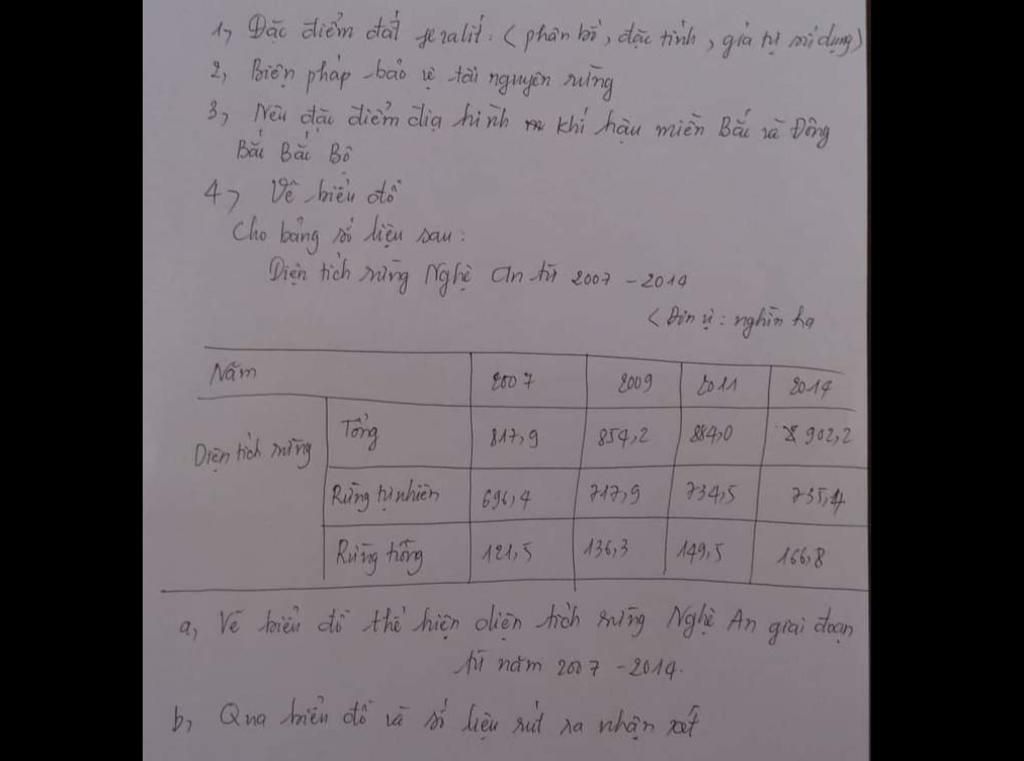 1, Đặc điểm đất feralit. (phân bố, đặc tính, giá trị sử dụng)
2, Biện pháp bảo vệ tài nguyên rừng
3, Nêu đặc điểm địa hình khí hậu miền Bắc và Đông
Bắc Bắc Bộ
4, Vẽ biểu đồ
Cho bảng số liệu sau:
Diện tích rừng Nghệ An từ 2007 - 2014
(Đơn vị: nghìn ha
Năm 2007 2009 2011 2014
Diện tích rừng Tổng 817,9 854,2 884,0 902,2
Rừng tự nhiên 696,4 717,9 734,5 735,4
Rừng trồng 121,5 136,3 149,5 166,8
a, Vẽ biểu đồ thể hiện diện tích rừng Nghệ An giai đoạn
từ năm 2007 - 2014.
b, Qua biểu đồ và số liệu rút ra nhận xét